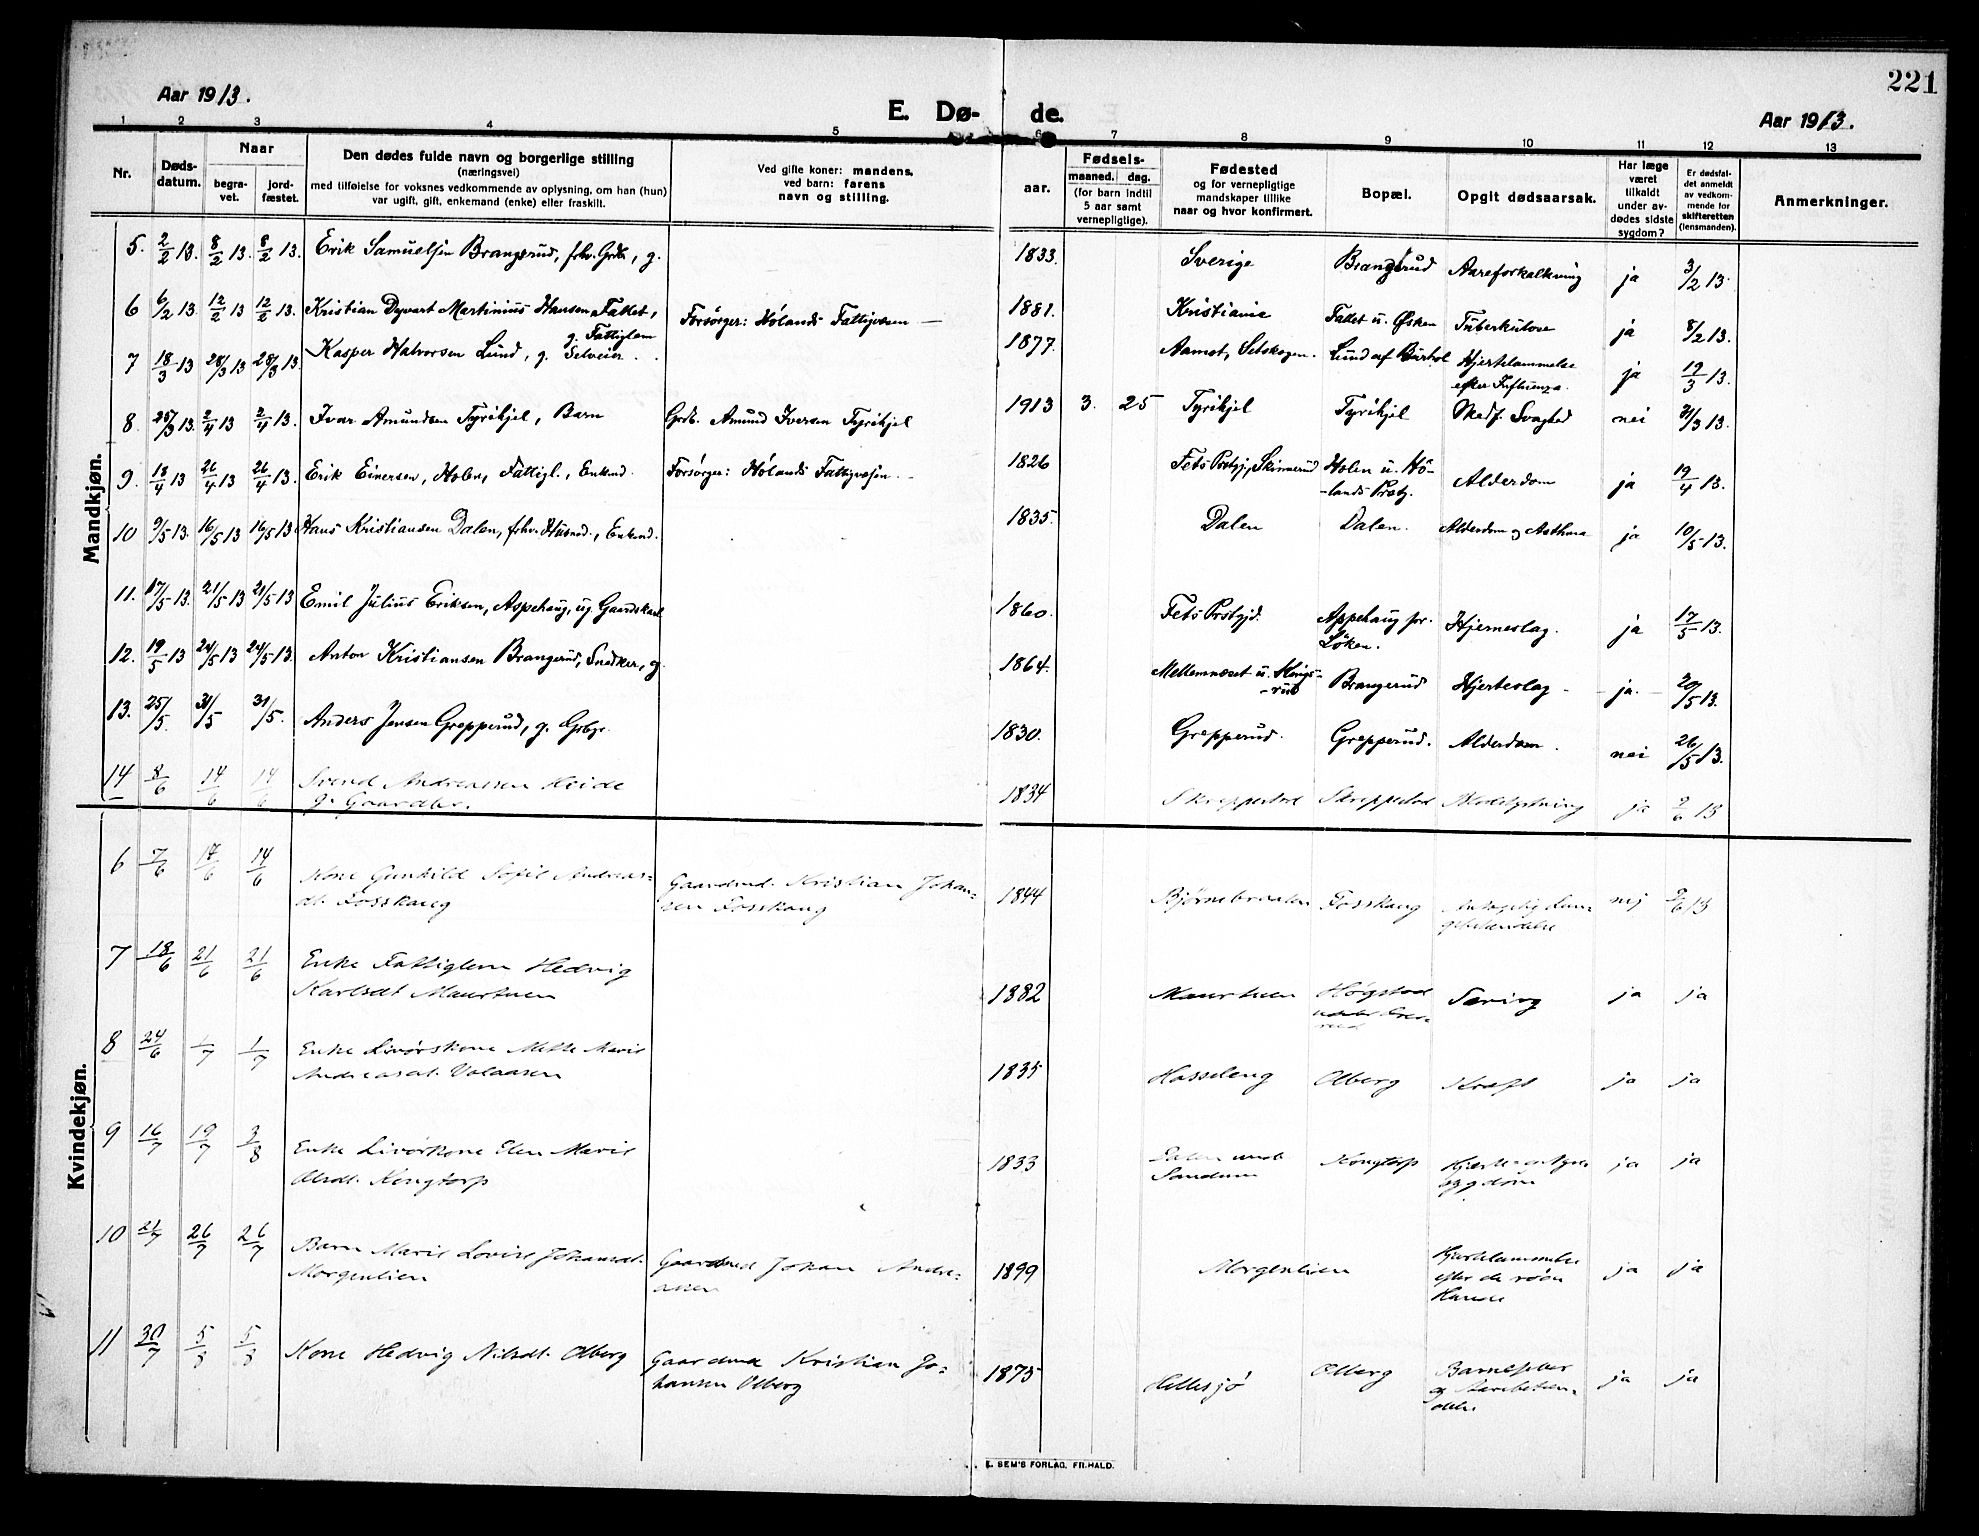 221
Aar 1913.
E. Dø- de.
Aar 1913.
1 2 3 4 5 6 7 8 9 10 11 12 13
Nr.
Døds-
datum.
Naar
begra-
vet.
jord-
fæstet.
Den dødes fulde navn og borgerlige stilling
(næringsvei)
med tilføielse for voksnes vedkommende av oplysning, om han (hun)
var ugift, gift, enkemand (enke) eller fraskilt.
Ved gifte koner: mandens,
ved barn: farens
navn og stilling.
aar.
Fødsels-
maaned. dag.
(for barn indtil
5 aar samt
vernepligtige).
Fødested
og for vernepligtige
mandskaper tillike
naar og hvor konfirmert.
Bopæl.
Opgit dødsaarsak.
Har læge
været
tilkaldt
under av-
dødes sidste
sygdom?
Er dødsfal-
det anmeldt
av vedkom-
mende for
skifteretten
(lensmanden).
Anmerkninger.
Mandkjøn.
5. 2/2 13. 8/2 13 8/2 13. Erik Samuelsen Brangerud, fhv. Grdbr, g. 1833. Sverige Brangerud Aareforkalkning ja 3/2 13.
6 6/2 13. 12/2 13 12/2 13. Kristian Dyvart Martinius Hansen Fallet, Forsørger: Hølands Fattigvæsen — 1881. Kristiania Fallet u. Økern Tuberkulose ja 8/2 13.
g. Fattiglem
7 18/3 13 28/3 13 28/3 13. Kasper Halvorsen Lund, g. Selveier. 1877. Aamot, Setskogen. Lund af Burhol Hjertelammelse ja 19/3 13.
efter Influenza.
8. 25/3 13. 2/4 13 2/4 13. Ivar Amundsen Tyrihjel, Barn Grdb. Amund Iversen Tyrihjel 1913 3. 25 Tyrihjel Tyrihjel Medf. Svaghed nei 31/3 13.
9. 18/4 13 26/4 13 26/4 13. Erik Einersen, Holen, Fattigl., Enkemd. Forsørger: Hølands Fattigvæsen. 1826 Fets Prstgj., Skinnerud Holen u. Hö- Alderdom ja 19/4 13.
-lands Prstg.
10 9/5 13. 16/5 13 16/5 13 Hans Kristiansen Dalen, fhv. Husmd., Enkemd. 1835. Dalen Dalen. Alderdom og Asthma ja 10/5 13.
11. 17/5 13. 21/5 13 21/5 13 Emil Julius Eriksen, Aspehaug, ug. Gaardskarl 1860. Fets Prstgjd. Aspehaug por. Hjerneslag. ja 17/5 13.
Løken.
12. 19/5 13 24/5 13 24/5 13. Anton Kristiansen Brangerud, Snedker, g. 1864. Mellemnæset u. Kings- Brangerud Hjerteslag — ja. — 20/5 13.
-rud
13. 25/5. 31/5 31/5. Anders Jensen Grepperud, g. Grbgr. 1830. Grepperud. Grepperud. Alderdom. nei 26/5 13.
14 8/6 14/6 14/6 Svend Andreassen Heide 1834 Skreppestad Skreppestad ja 9/6 13
g. Gaardbr.
Kvindekjøn.
6 7/6 14/6 14/6 Kone Gunhild Sofie Andreas- Gaardmd. Kristian Johan- 1844 Fosshaug nej 9/6 13
dt. Fosshaug sen Fosshaug
7 18/6 21/6 21/6 Enke Fattiglem Hedvig 1882 Maurtuen Høgstad Tæring ja ja
Karlsdt Maurtuen
8 24/6 1/7 1/7 Enke Livørskone Mette Marie 1835 Hasseleng Olberg Kræft ja ja
Andreasdt.
9 16/7 19/7 3/8 Enke Livørkone Elen Marie 1833 Dalen under Kongtorp ja ja
Olsdt. Kongtorp Sandum sygdom
10 21/7 26/7 26/7 Barn Marie Lovise Johansdt. Gaardmd Johan Andre- 1899 Morgenlien Hjertelammelse ja ja
Morgenlien assen efter de røde
Hunde
11 30/7 5/8 5/8 Kone Hedvig Nilsdt. Olberg Gaardmd Kristian Jo- 1875 Hellesjø Olberg Barnefeber ja ja
hansen Olberg og Aarebetæn-
delse
E. SEM'S FORLAG, FR.HALD.